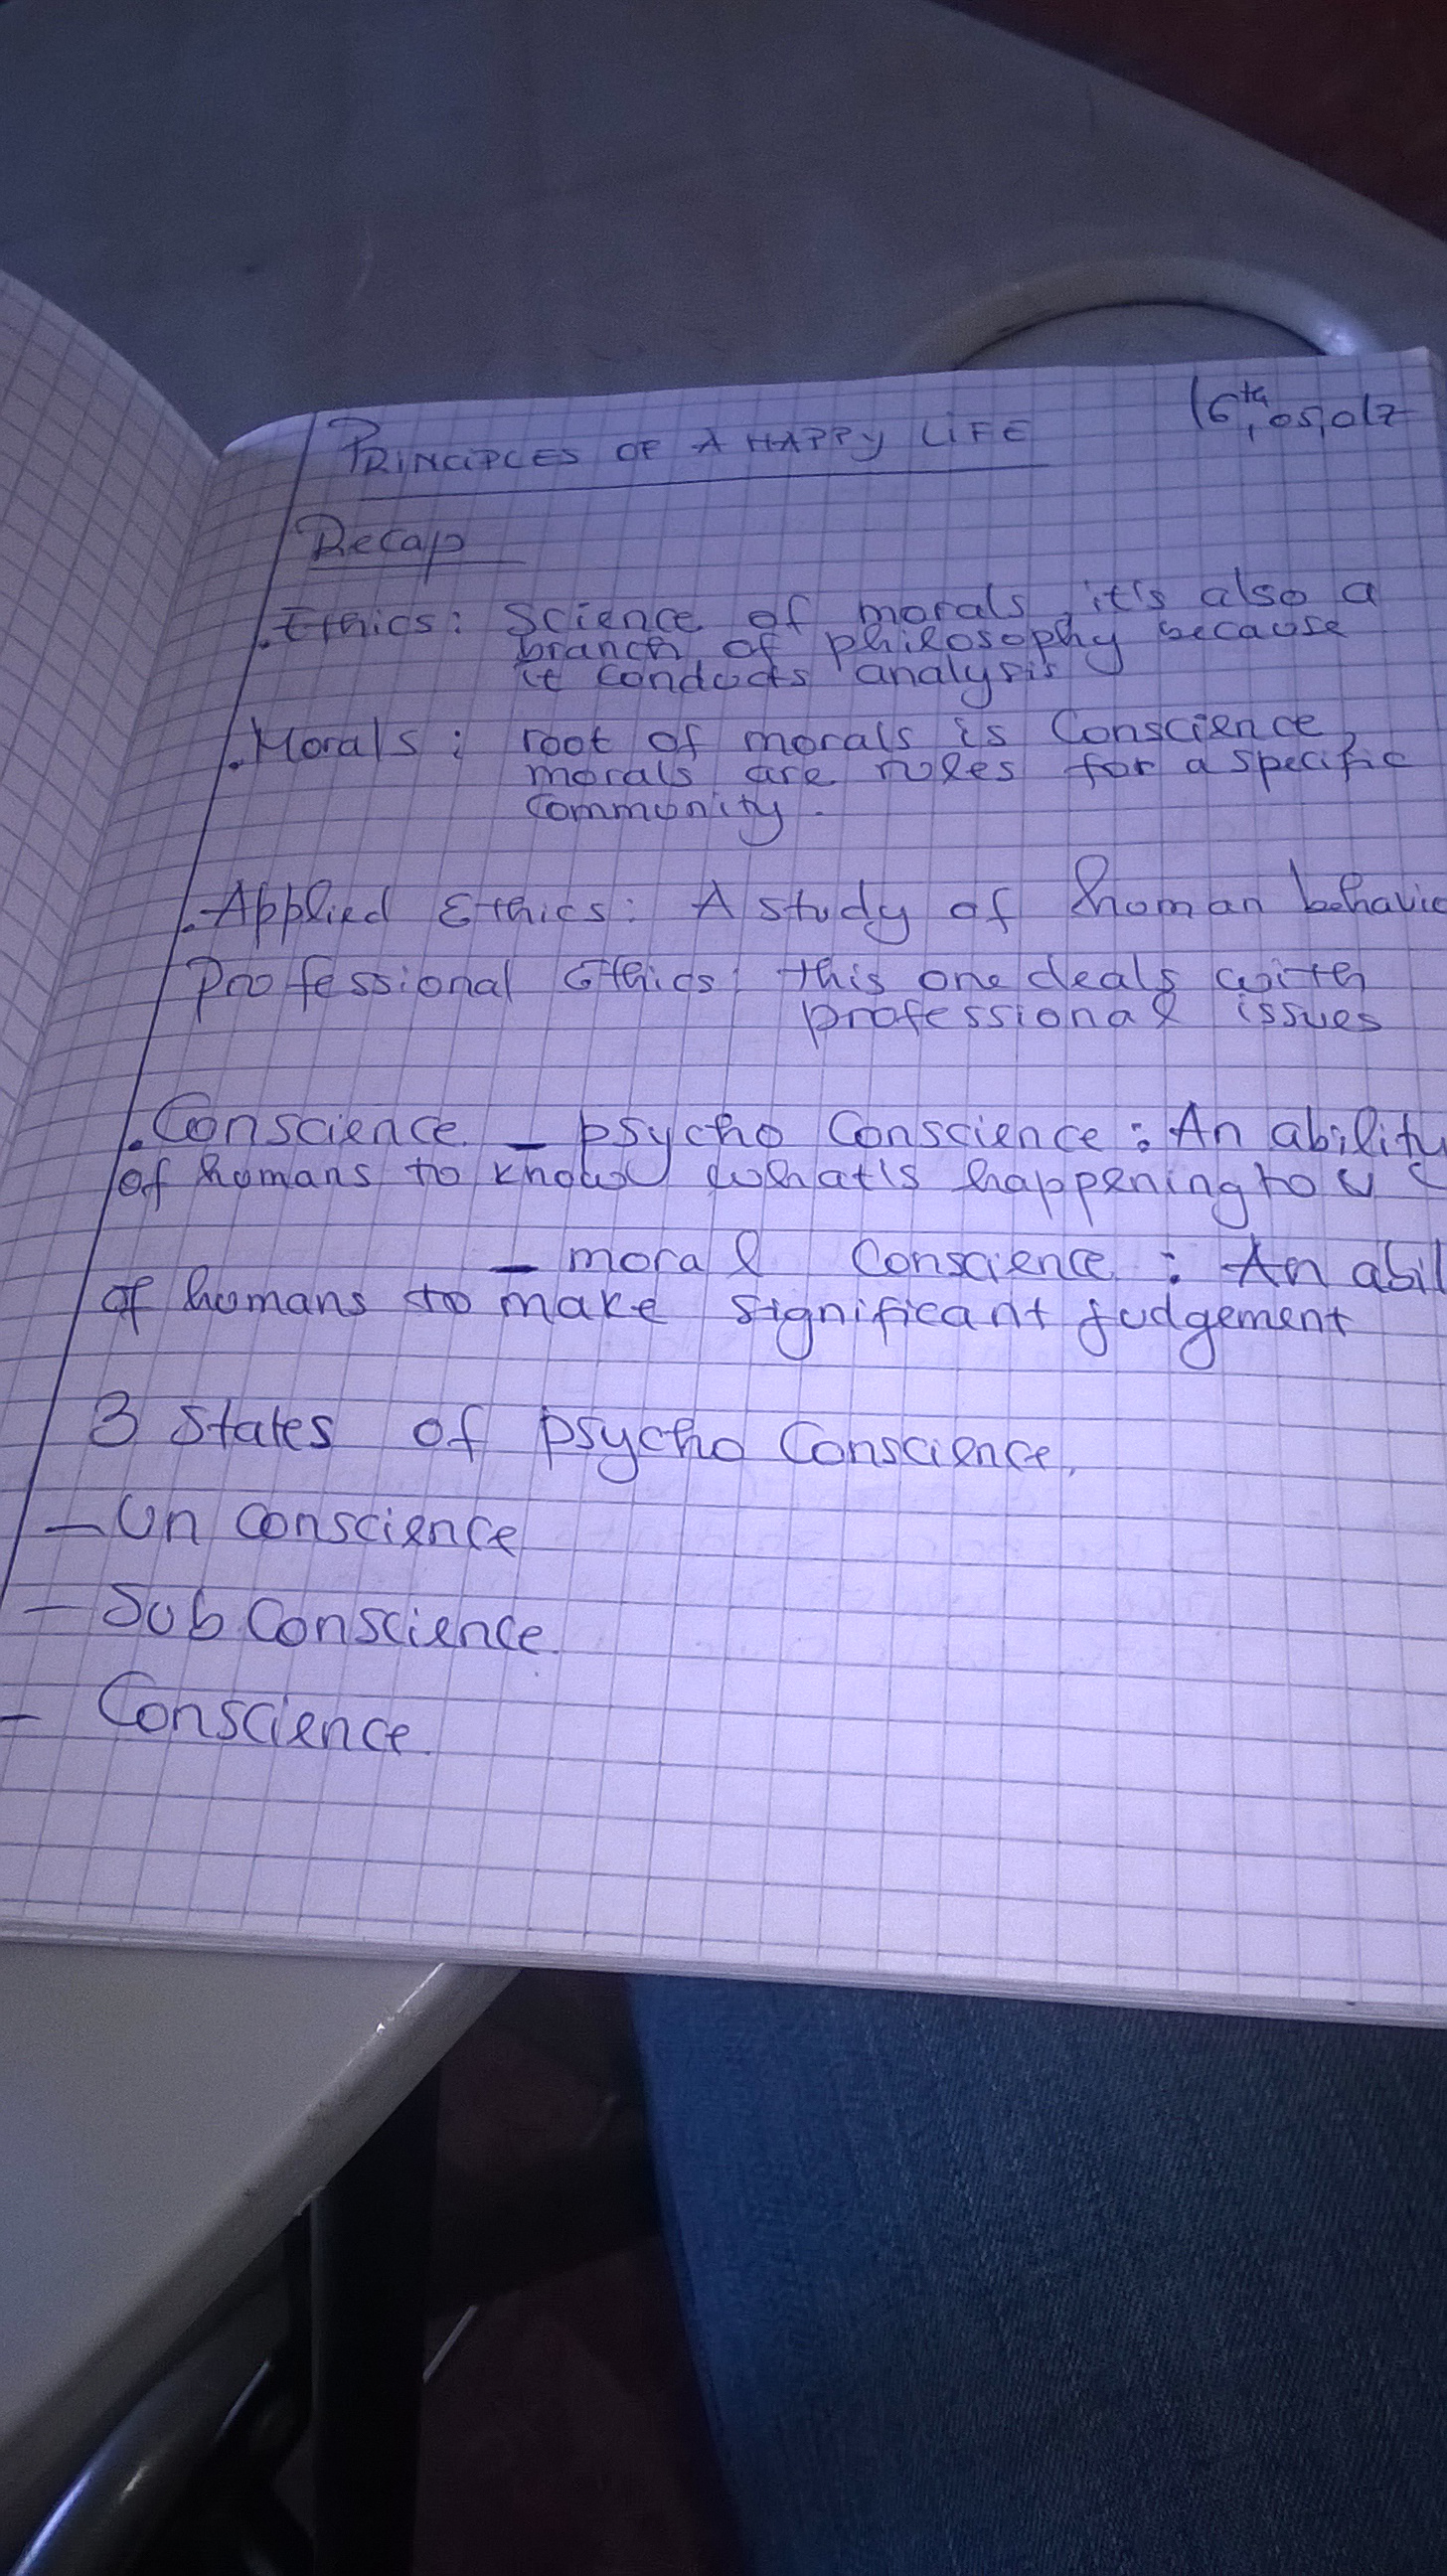 PRINCIPLES OF A HAPPY LIFE
16th, 05, 017
Recap
. Ethics: Science of morals, it's also a
branch of philosophy because
it conducts analysis
. Morals: root of morals is Conscience,
morals are rules for a specific
Community.
. Applied Ethics: A study of human behavio
Professional Ethics: this one deals with
professional issues
. Conscience - psycho Conscience: An ability
of humans to know what's happening to u
- moral Conscience: An abil
of humans to make significant judgement
3 States of psycho Conscience.
- Un conscience
- Sub Conscience.
- Conscience.